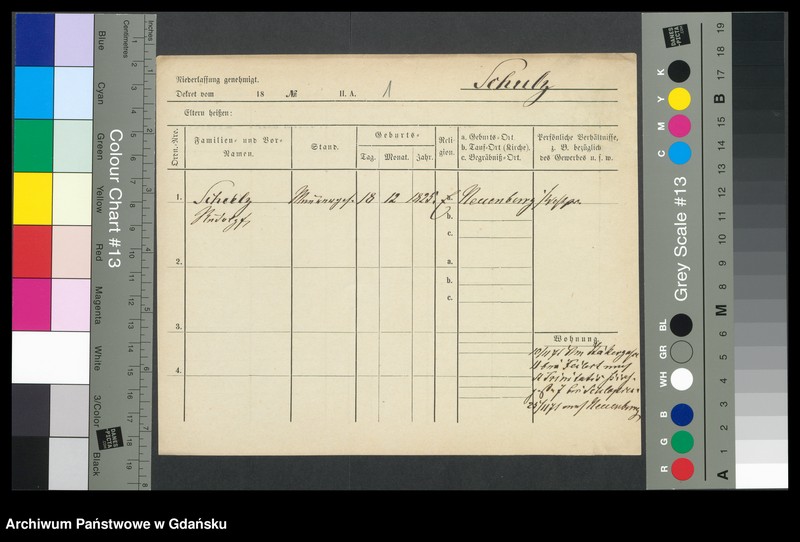 Niederlassung genehmigt.
Dekret vom 18 № II. A. 1
Schulz
Eltern heißen:
Ord.-Nro.
Familien- und Vor-Namen.
Stand.
Geburts-
Tag. Monat. Jahr.
Religion.
a. Geburts-Ort
b. Tauf-Ort (Kirche).
c. Begräbniß-Ort.
Persönliche Verhältnisse,
z. B. bezüglich
des Gewerbes u. s. w.
1. Schulz 18 12 1828 a. Neuenburg
Rudolph b.
c.
2. a.
b.
c.
3.
Wohnung.
4.
25/11 71 nach Neuenburg
Colour Chart #13
Blue
Cyan
Green
Yellow
Red
Magenta
White
3/Color
Black
Centimetres
Inches
Grey Scale #13
C M Y K
R G B WH GR BL
A 1 2 3 4 5 6 M 8 9 10 11 12 13 14 15 B 17 18 19
DANES-PICTA
Archiwum Państwowe w Gdańsku